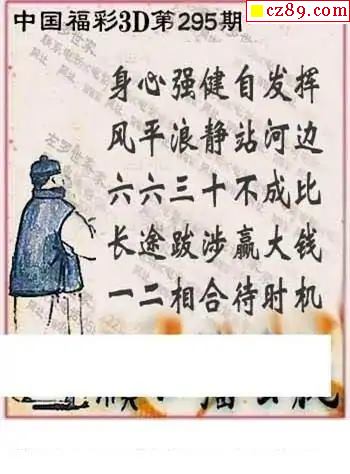 cz89.com
中国福彩3D第295期
身心强健自发挥
风平浪静站河边
六六三十不成比
长途跋涉赢大钱
一二相合待时机